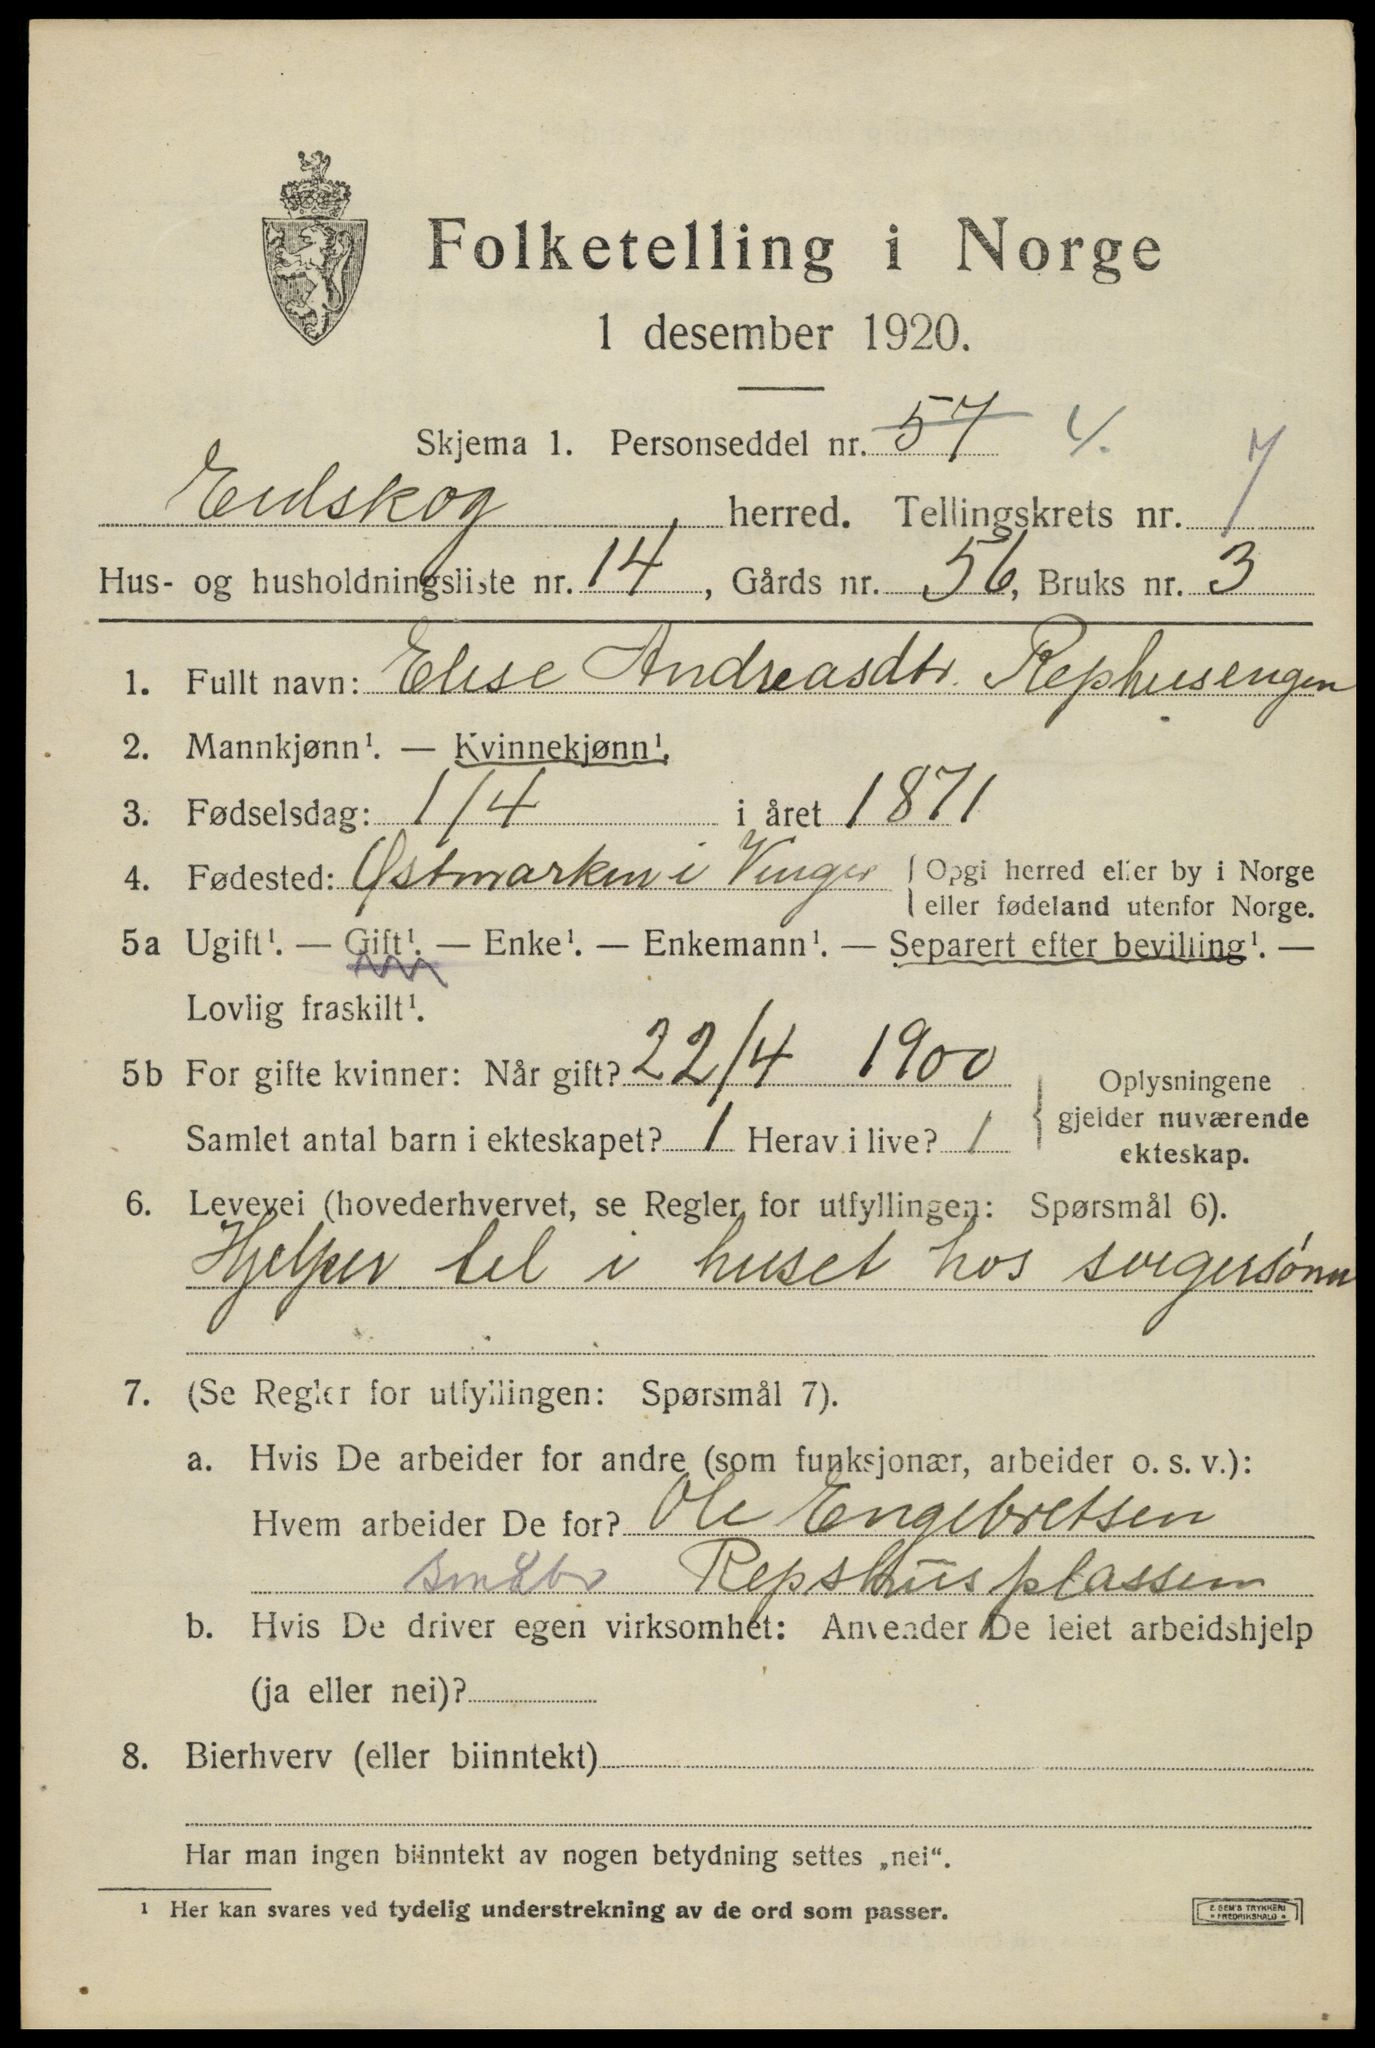 Folketelling i Norge
1 desember 1920.
Skjema 1. Personseddel nr. 57 4.
Eidskog herred. Tellingskrets nr. 7
Hus- og husholdningsliste nr. 14, Gårds nr. 56, Bruks nr. 3
1. Fullt navn: Elise Andreasdtr. Rephusengen
2. Mannkjønn¹. — Kvinnekjønn¹.
3. Fødselsdag: 1/4 i året 1871
4. Fødested: Østmarken i Vinger { Opgi herred eller by i Norge
eller fødeland utenfor Norge.
5a Ugift¹. — Gift¹. — Enke¹. — Enkemann¹. — Separert efter bevilling¹. —
Lovlig fraskilt¹.
5b For gifte kvinner: Når gift? 22/4 1900
Samlet antal barn i ekteskapet? 1 Herav i live? 1
Oplysningene
gjelder nuværende
ekteskap.
6. Levevei (hovederhvervet, se Regler for utfyllingen: Spørsmål 6).
Hjelper til i huset hos svigersønn
7. (Se Regler for utfyllingen: Spørsmål 7).
a. Hvis De arbeider for andre (som funksjonær, arbeider o. s. v.):
Hvem arbeider De for? Ole Engebretsen
småbr Repshusplassen
b. Hvis De driver egen virksomhet: Anvender De leiet arbeidshjelp
(ja eller nei)?
8. Bierhverv (eller biinntekt)
Har man ingen biinntekt av nogen betydning settes „nei“.
¹ Her kan svares ved tydelig understrekning av de ord som passer.
E. SEM'S TRYKKERI
FREDRIKSHALD